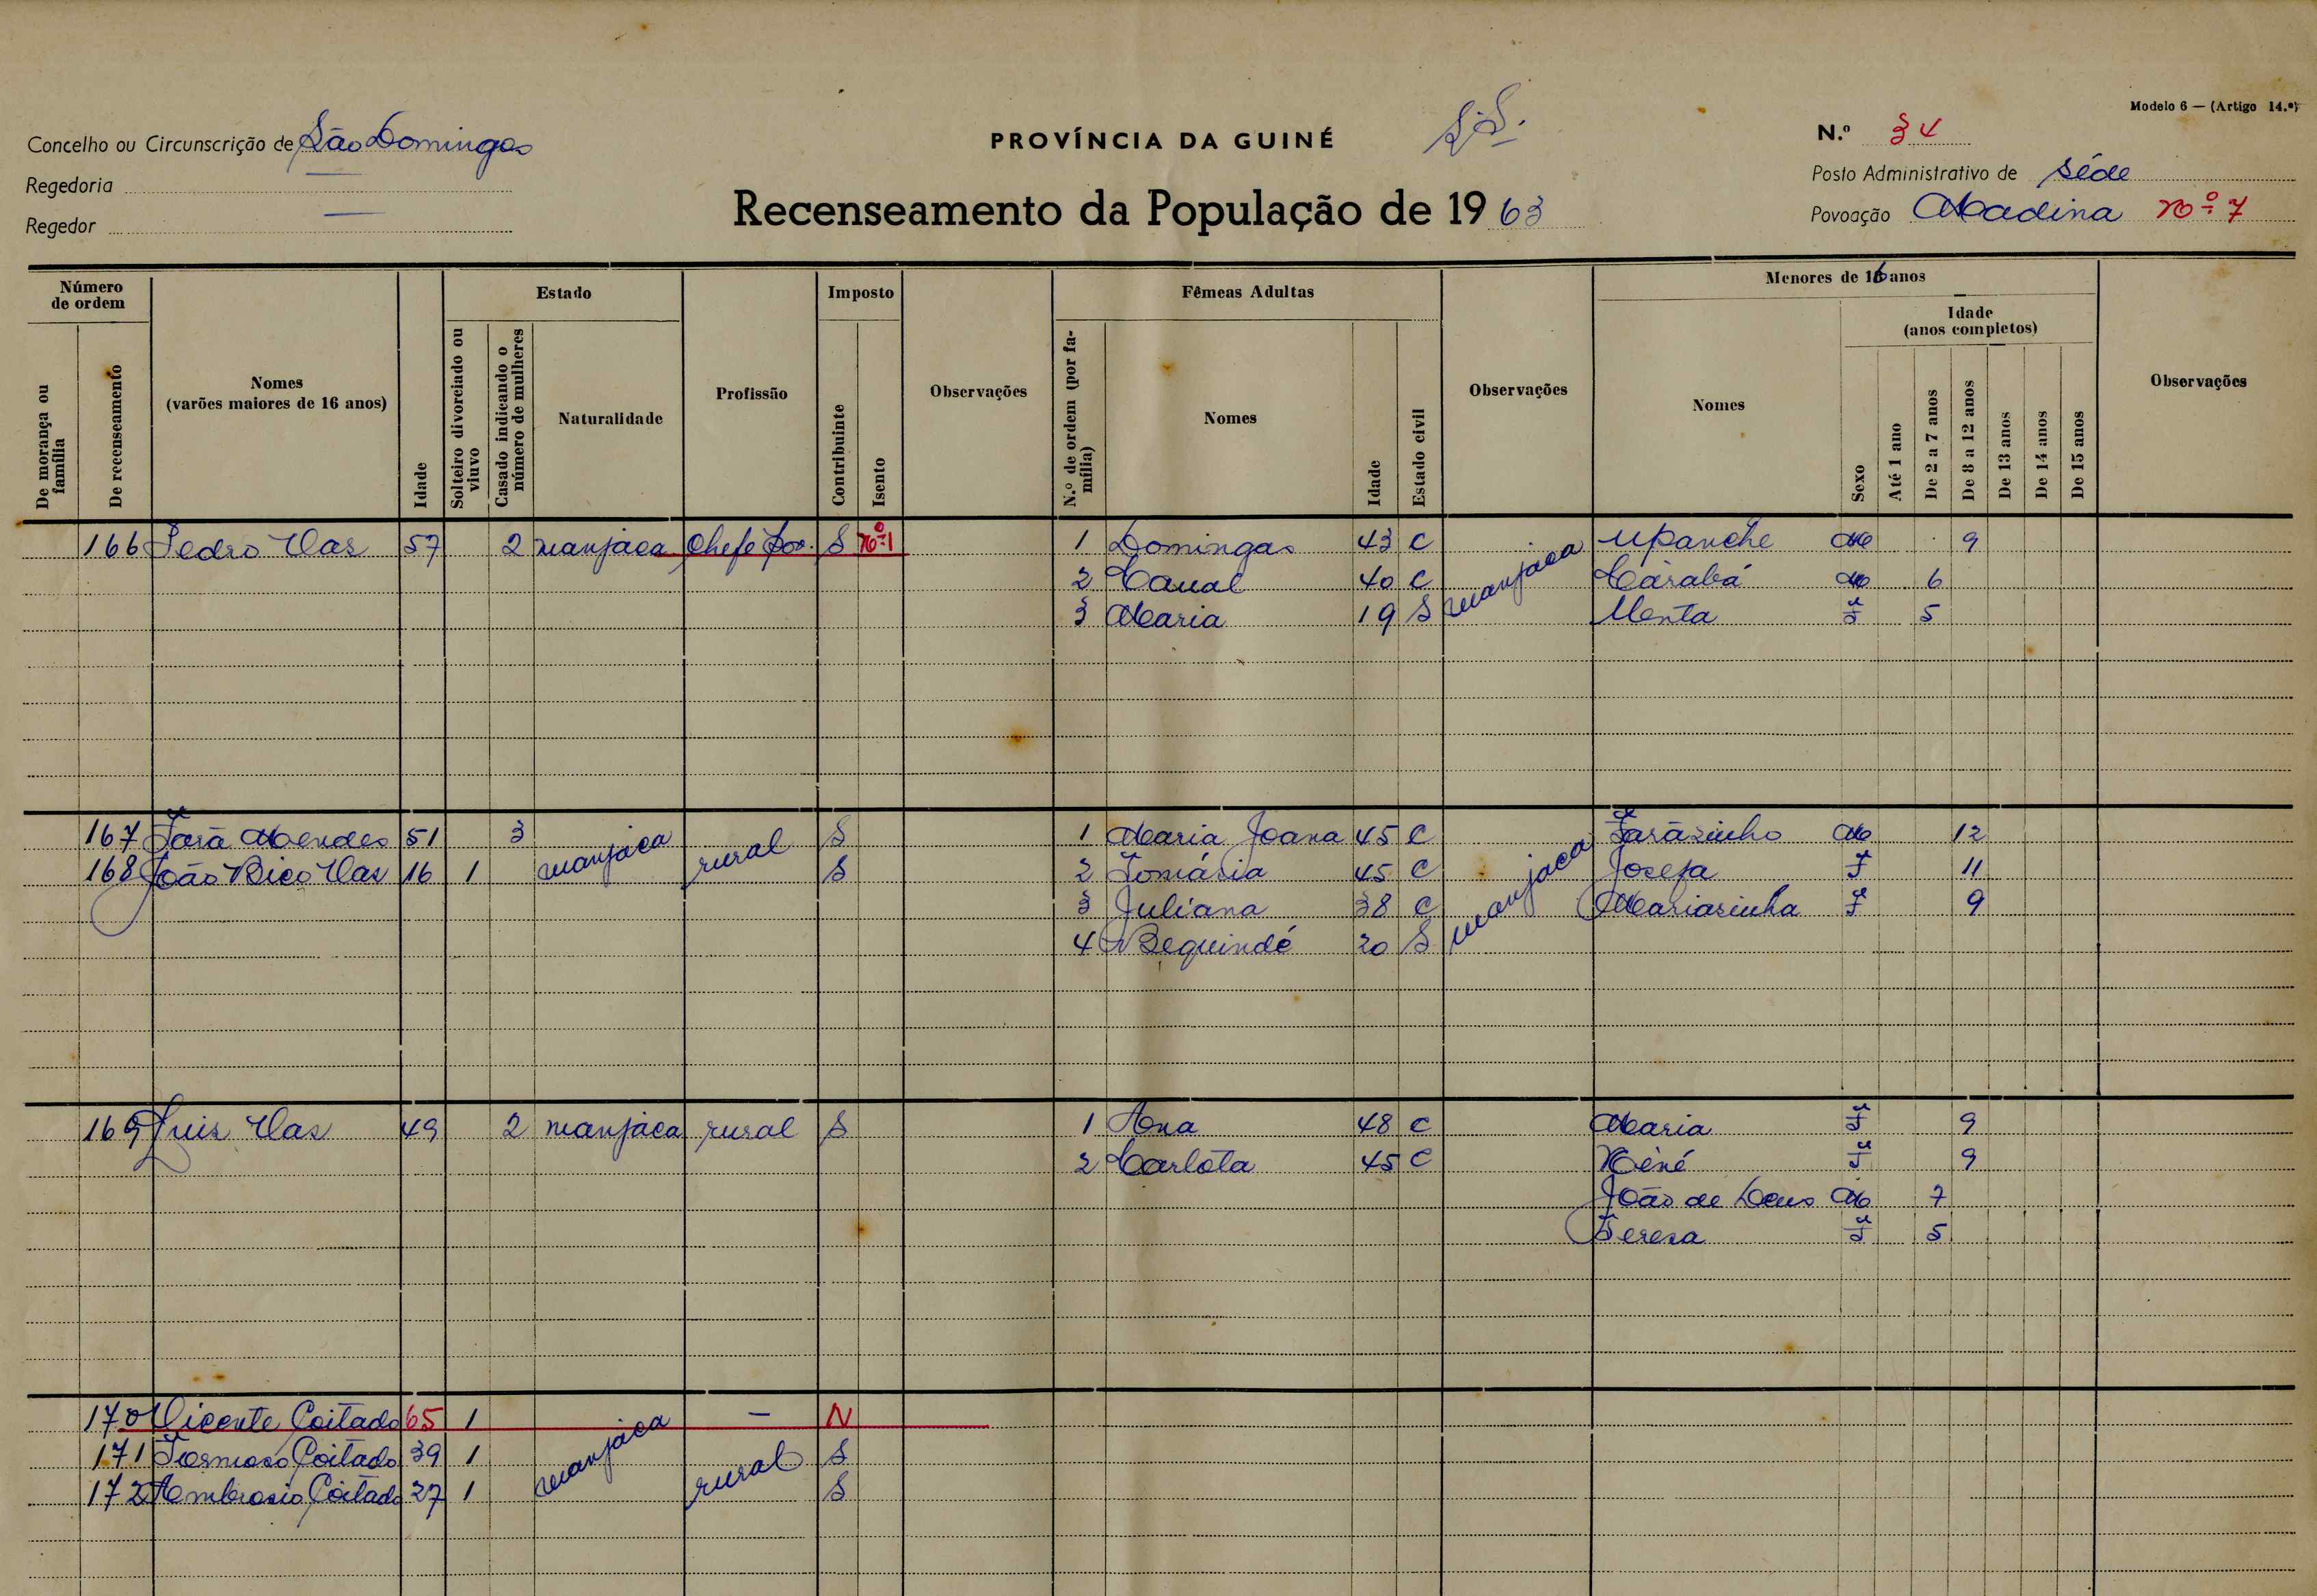 Modelo 6 — (Artigo 14.º)
Concelho ou Circunscrição de São Domingos
PROVÍNCIA DA GUINÉ
S.S.
N.º 34
Regedoria —
Posto Administrativo de Séde
Regedor —
Recenseamento da População de 1963
Povoação Madina nº 7
Número de ordem
De morança ou família
De recenseamento
Nomes (varões maiores de 16 anos)
Idade
Estado
Solteiro divorciado ou viuvo
Casado indicando o número de mulheres
Naturalidade
Profissão
Imposto
Contribuinte
Isento
Observações
Fêmeas Adultas
N.º de ordem (por família)
Nomes
Idade
Estado civil
Observações
Menores de 16 anos
Nomes
Sexo
Idade (anos completos)
Até 1 ano
De 2 a 7 anos
De 8 a 12 anos
De 13 anos
De 14 anos
De 15 anos
Observações
166 Pedro Vaz 57 2 manjaca Chefe Pov. S nº1 1 Domingas 43 C manjaca Upanche M 9
2 Canal 40 C Carabá M 6
3 Maria 19 S Menta F 5
167 Fará Mendes 51 3 manjaca rural S 1 Maria Joana 45 C manjaca Farázinho M 12
168 João Bico Vaz 16 1 S 2 Tomásia 45 C Josefa F 11
3 Juliana 38 C Mariazinha F 9
4 Bequindé 20 S
169 Luis Vaz 49 2 manjaca rural S 1 Ana 48 C Maria F 9
2 Carlota 45 C Néné F 9
João de Deus M 7
Teresa F 5
170 Vicente Coitado 65 1 manjaca — N
171 Formoso Coitado 39 1 rural S
172 Ambrosio Coitado 27 1 S